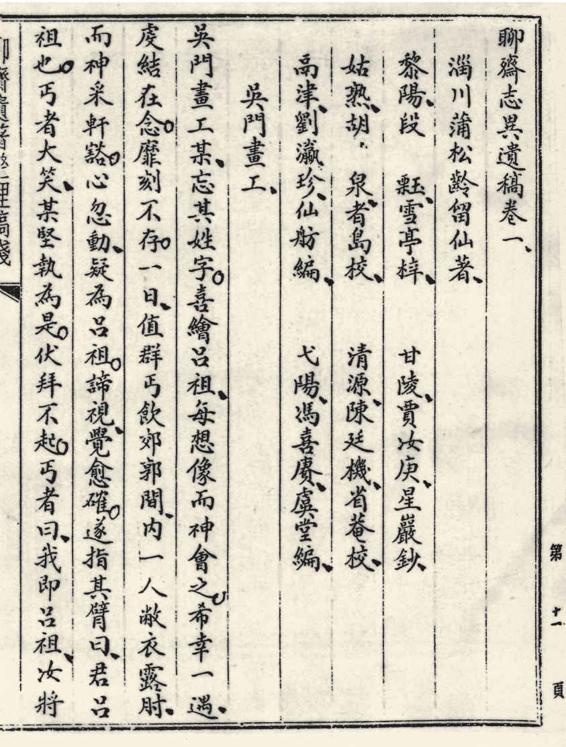 聊齋志異遺稿卷一、
淄川蒲松齡留仙著、
黎陽段　　雪亭梓、　甘陵賈汝庚、星巖鈔、
姑熟胡　泉、者島校、　清源陳廷機、省菴校、
鬲津劉瀛珍、仙舫編、　弋陽馮喜賡、虞堂編、
吳門畫工、
吳門畫工某、忘其姓字。喜繪呂祖、每想像而神會之、希幸一遇、
虔結在念。靡刻不存。一日、值群丐飲郊郭間、內一人敝衣露肘、
而神采軒豁。心忽動、疑為呂祖。諦視、覺愈確。遂指其臂曰、君呂
祖也。丐者大笑、某堅執為是。伏拜不起。丐者曰、我即呂祖、汝將
第十一頁